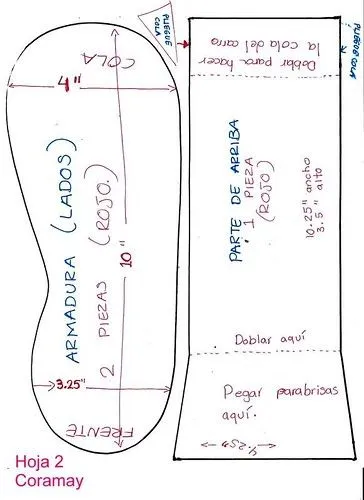 COLA
4"
ARMADURA (LADOS)
2 PIEZAS (ROJO.)
10"
3.25"
FRENTE
PLIEGUE
COLA
PLIEGUE COLA
Doblar para hacer
la cola del carro
PARTE DE ARRIBA
1 PIEZA
(ROJO)
10.25" ancho
3.5" alto
Doblar aquí
Pegar parabrisas
aquí.
4.25"
Hoja 2
Coramay